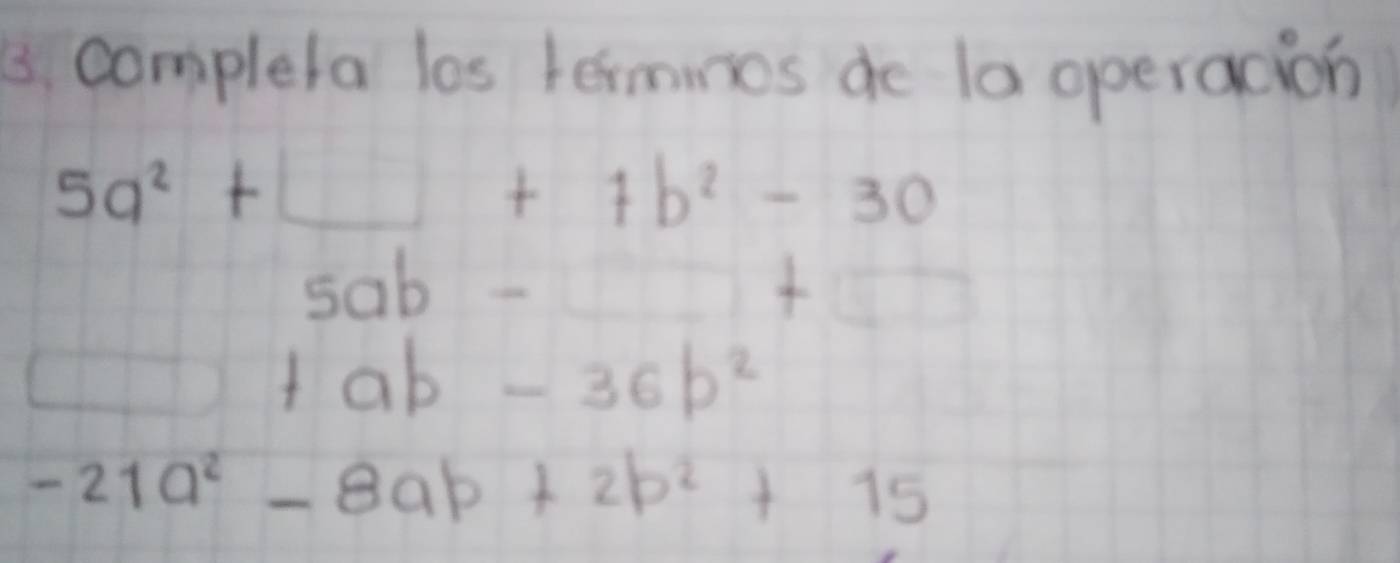 3. Completa los términos de la operación
5a² + □ + 7b² - 30
5ab - □ + □
□ + ab - 36b²
-21a² - 8ab + 2b² + 15